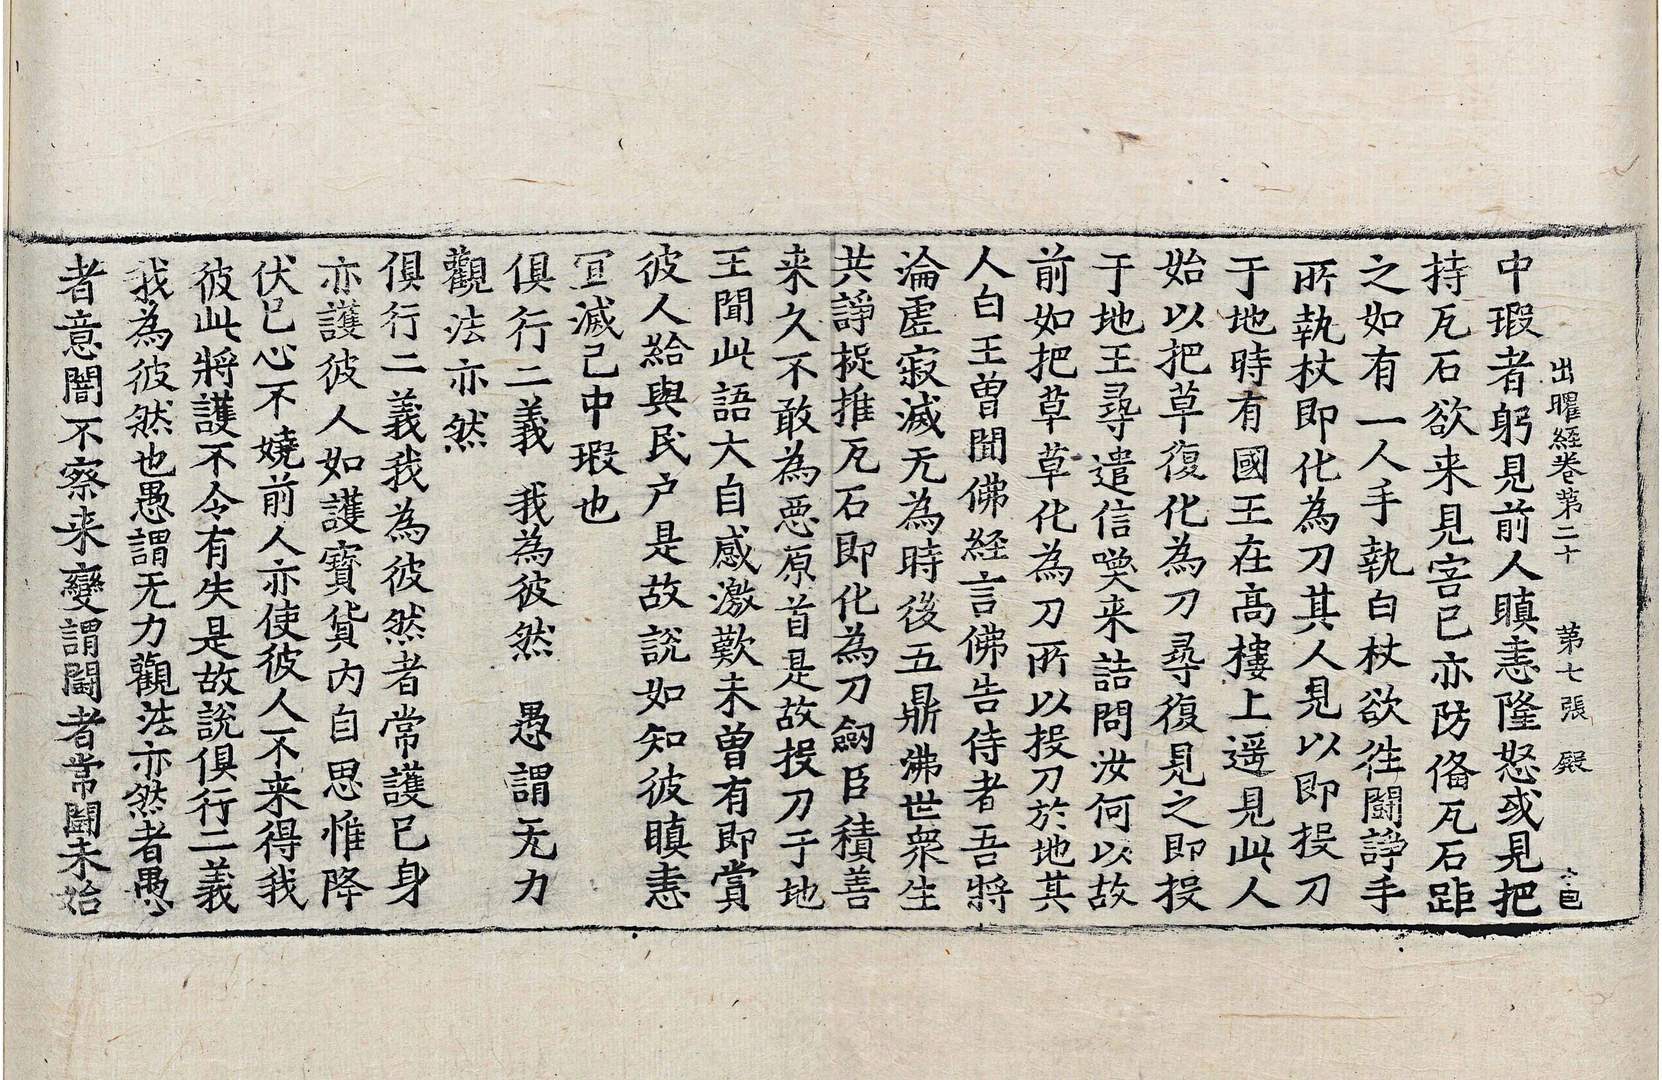 出曜経卷第二十　第七張　殿
中瑕者躬見前人瞋恚隆怒或見把
持瓦石欲来見害已亦防偹瓦石距
之如有一人手執白杖欲徃鬪諍手
所執杖即化為刀其人見以即投刀
于地時有國王在髙樓上遥見此人
始以把草復化為刀尋復見之即投
于地王尋遣信喚来詰問汝何以故
前如把草草化為刀所以投刀於地其
人白王曽聞佛経言佛告侍者吾將
淪虛寂滅无為時後五鼎沸世衆生
共諍捉推瓦石即化為刀劔臣積善
来久不敢為惡原首是故投刀于地
王聞此語大自感激歎未曽有即賞
彼人給與民户是故說如知彼瞋恚
冝滅己中瑕也
俱行二義　我為彼然　愚謂无力
觀法亦然
俱行二義我為彼然者常護已身
亦護彼人如護寶貨内自思惟降
伏已心不嬈前人亦使彼人不来得我
彼此將護不令有失是故說俱行二義
我為彼然也愚謂无力觀法亦然者愚
者意闇不察来變謂鬪者常鬪未始